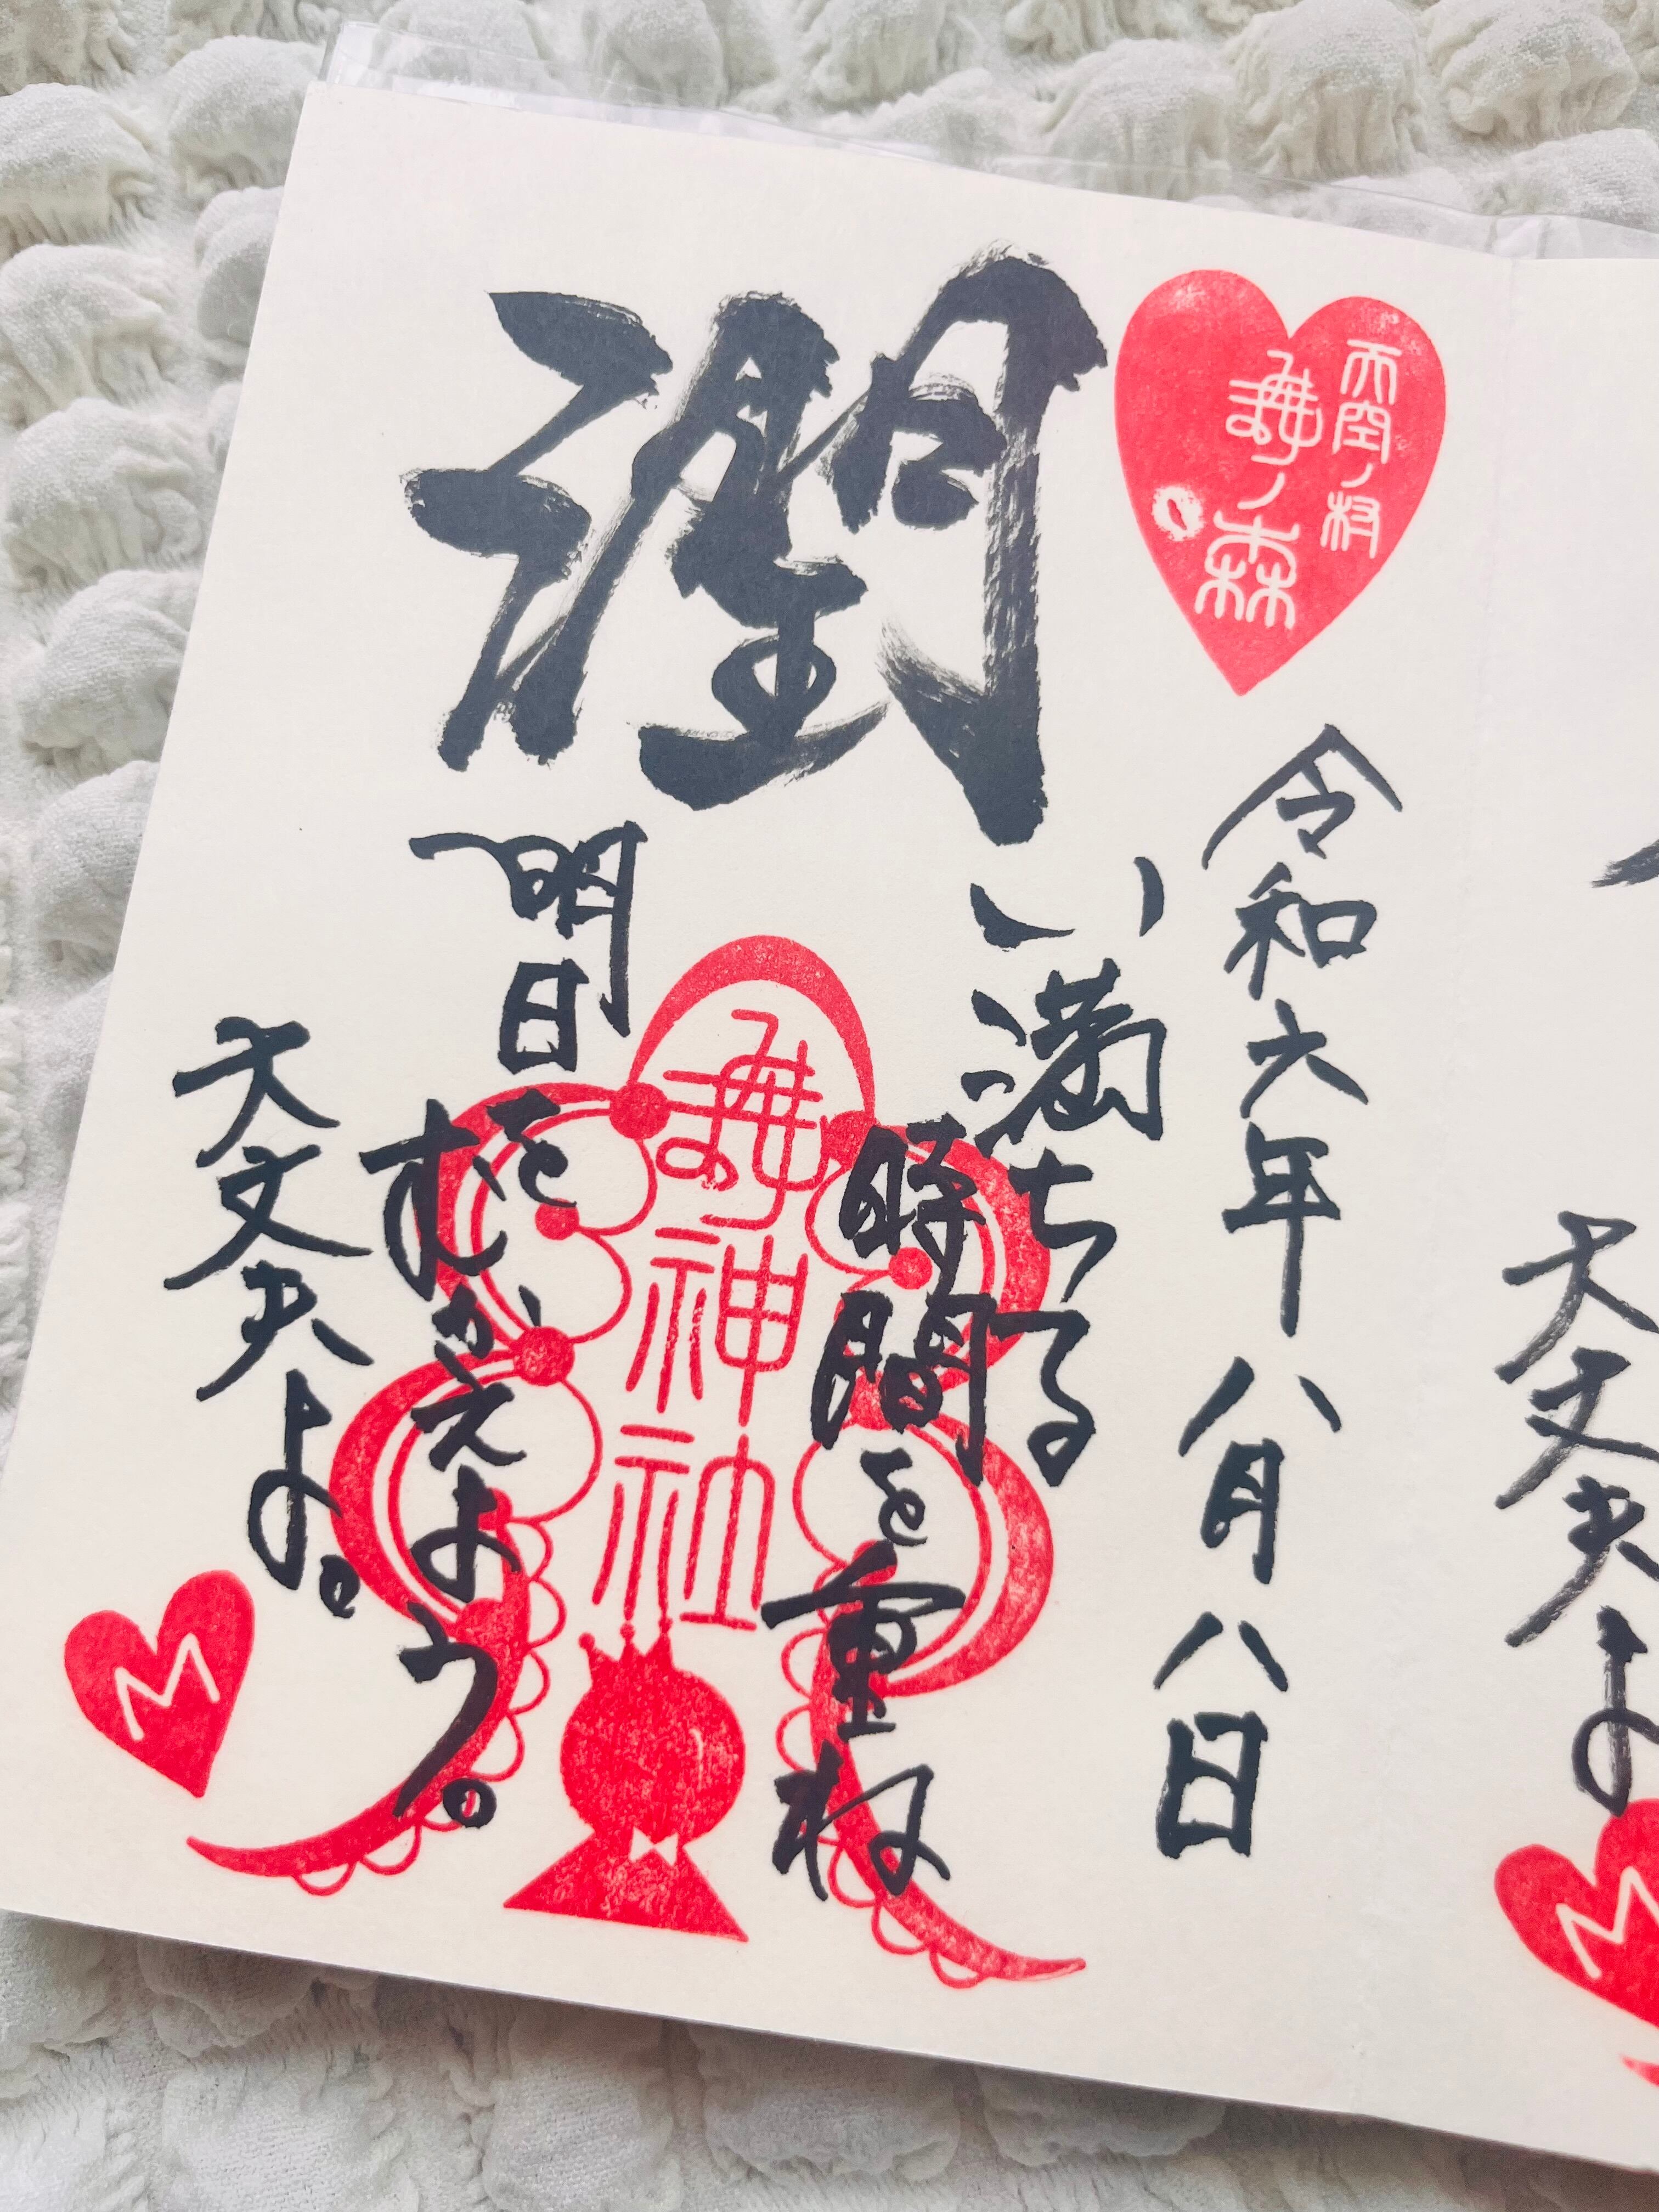 令和六年八月八日
潤
い満ちる
時間を重ね
神社
明日を
むかえよう。
大丈夫よ。
M
大丈夫よ
M